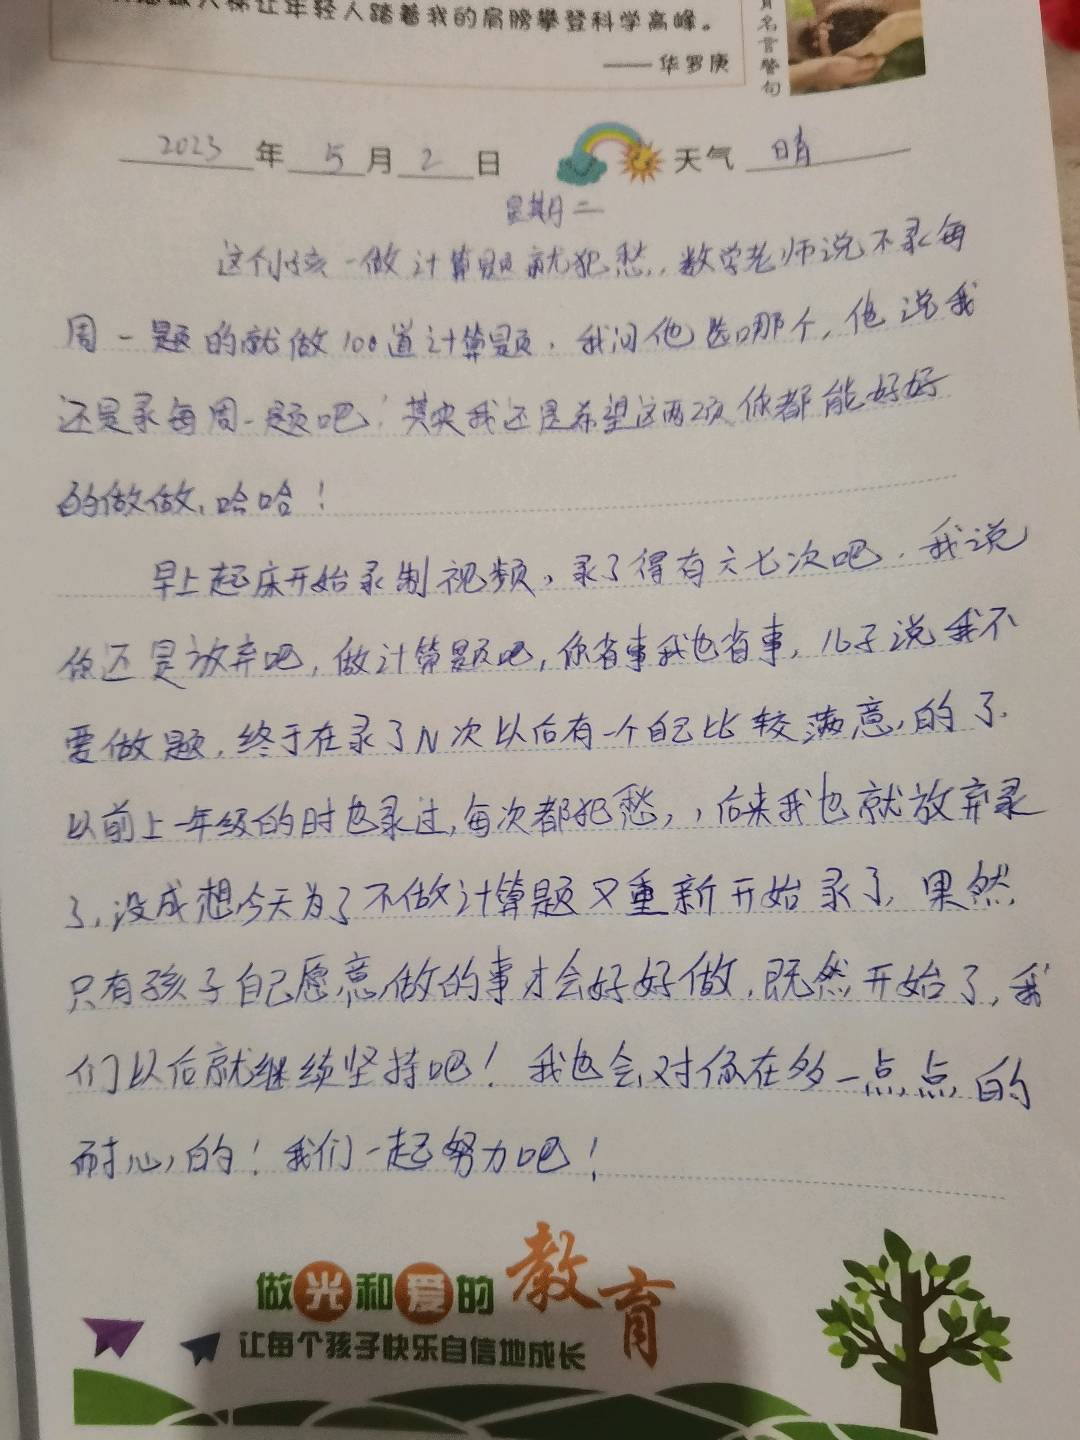 让年轻人踏着我的肩膀攀登科学高峰。
——华罗庚
名言警句
2023年5月2日 天气 晴
星期二
这个孩一做计算题就犯愁，数学老师说不录每
周一题的就做100道计算题，我问他选哪个，他说我
还是录每周一题吧！其实我还是希望这两项你都能好好
的做做，哈哈！
早上起床开始录制视频，录了得有六七次吧，我说
你还是放弃吧，做计算题吧，你省事我也省事，儿子说我不
要做题，终于在录了N次以后有一个自己比较满意的了
以前上一年级的时也录过，每次都犯愁，，后来我也就放弃录
了，没成想今天为了不做计算题又重新开始录了，果然
只有孩子自己愿意做的事才会好好做，既然开始了，我
们以后就继续坚持吧！我也会对你在多一点点的
耐心的！我们一起努力吧！
做光和爱的教育
让每个孩子快乐自信地成长